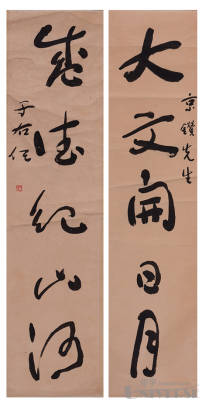 大文開日月
京鑽先生
盛德紀山河
于右任